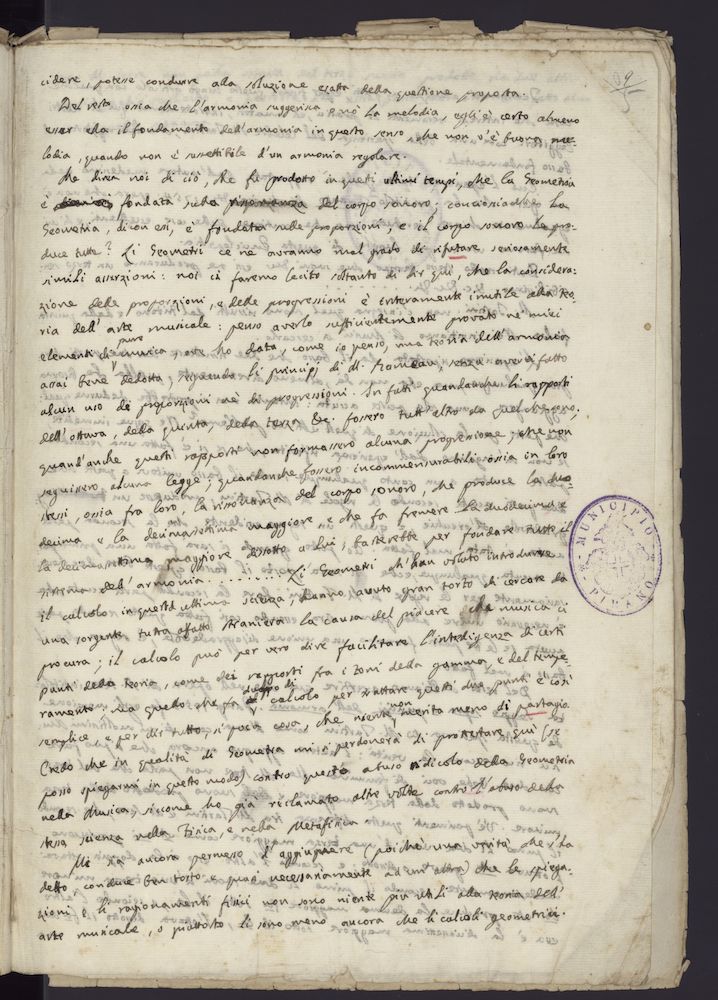 109
cidere, potesse condurre alla soluzione esatta della questione proposta.
Del resto ossia che l'armonia suggerisca o nò la melodia, egli è certo almeno
esser ella il fondamento dell'armonia in questo senso, che non v'è buona me-
lodia, quando non è suscettibile d'un armonia regolare.
Ma diren noi di ciò, che fu prodotto in questi ultimi tempi, che la Geometria
è fondata sulla risonanza del corpo sonoro: conciosiache la
Geometria, dicon essi, è fondata sulle proporzioni, e il corpo sonoro le pro-
duce tutte? Li Geometri ce ne avranno mal grado di rifutare seriosamente
simili asserzioni: noi ci faremo lecito soltanto di dir qui, che la considera-
zione delle proporzioni, e delle progressioni è interamente inutile alla teo-
ria dell'arte musicale: penso averlo sufficientemente provato ne' miei
elementi di musica, ove ho data, come io penso, una teoria dell'armonia
pure
assai bene dedotta, seguendo li principj di di Rameau, senza avervi fatto
alcun uso di proporzioni ne di progressioni. In fatti quandanche li rapporti
dell'ottava, della quinta, della terza &c. fossero tutt'altro da quel che sono.
quand'anche questi rapporti non formassero alcuna progressione, che non
seguissero alcuna legge; quandanche fossero incommensurabili ossia in loro
stessi, ossia fra loro, la risonanza del corpo sonoro, che produce la duo
decima e la decimasettima maggiore, e che fa fremere la duodecima e
la decimasettima maggiore dissotto a lui, basterebbe per fondare tutto il
sistema dell'armonia . . . . . . . . . Li Geometri ch'han voluto introdurre
il calcolo in quest'ultima scienza, hanno avuto gran torto di cercare da
una sorgente tutta affatto straniera la causa del piacere che musica ci
procura; il calcolo può per vero dire facilitare l'intelligenza di certi
punti della teoria, come dei rapporti fra i toni della gamma, e del tempe-
ramento; ma quello che fa di calcolo per trattare questi due punti è così
duopo di
semplice, e per dir tutto, si poca cosa, che niente merita meno di partagio
non
Credo che in qualità di Geometra mi si perdonerà di protestare quì (se
posso spiegarmi in questo modo) contro questo abuso ridicolo della Geometria
nella Musica, siccome ho già reclamato altre volte contro l'abuso della
stessa scienza nella Fisica, e nella Metafisica
Mi sia ancora permesso d'aggiugnere (poichè una verità che s'ha
detto, conduce ben tosto e quasi necessariamente ad un'altra) che le spiega-
zioni e li ragionamenti fisici non sono niente più utili alla teoria dell'
arte musicale, o piuttosto li sono meno ancora che li calcoli geometrici.
MUNICIPIO
PIRANO